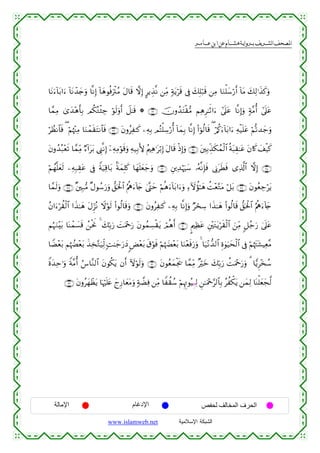 المصحف الشريف برواية هشام عن ابن عامر
وَكَذَٰلِكَ مَآ أَرْسَلْنَا مِن قَبْلِكَ فِى قَرْيَةٍ مِّن نَّذِيرٍ إِلَّا قَالَ مُتْرَفُوهَآ إِنَّا وَجَدْنَآ ءَابَآءَنَا
عَلَىٰٓ أُمَّةٍ وَإِنَّا عَلَىٰٓ ءَاثَٰرِهِم مُّقْتَدُونَ ۞ قَٰلَ أَوَلَوْ جِئْتُكُم بِأَهْدَىٰ مِمَّا
وَجَدتُّمْ عَلَيْهِ ءَابَآءَكُمْ ۖ قَالُوٓا۟ إِنَّا بِمَآ أُرْسِلْتُم بِهِۦ كَٰفِرُونَ فَٱنتَقَمْنَا مِنْهُمْ ۖ فَٱنظُرْ
كَيْفَ كَانَ عَٰقِبَةُ ٱلْمُكَذِّبِينَ وَإِذْ قَالَ إِبْرَٰهَٰمُ لِأَبِيهِ وَقَوْمِهِۦٓ إِنَّنِى بَرَآءٌ مِّمَّا تَعْبُدُونَ
إِلَّا ٱلَّذِى فَطَرَنِى فَإِنَّهُۥ سَيَهْدِينِ وَجَعَلَهَا كَلِمَةًۢ بَاقِيَةً فِى عَقِبِهِۦ لَعَلَّهُمْ
يَرْجِعُونَ بَلْ مَتَّعْتُ هَٰٓؤُلَآءِ وَءَابَآءَهُمْ حَتَّىٰ جَآءَهُمُ ٱلْحَقُّ وَرَسُولٌ مُّبِينٌ وَلَمَّا
جَآءَهُمُ ٱلْحَقُّ قَالُوا۟ هَٰذَا سِحْرٌ وَإِنَّا بِهِۦ كَٰفِرُونَ وَقَالُوا۟ لَوْلَا نُزِّلَ هَٰذَا ٱلْقُرْءَانُ
عَلَىٰ رَجُلٍ مِّنَ ٱلْقَرْيَتَيْنِ عَظِيمٍ أَهُمْ يَقْسِمُونَ رَحْمَتَ رَبِّكَ ۚ نَحْنُ قَسَمْنَا بَيْنَهُم
مَّعِيشَتَهُمْ فِى ٱلْحَيَوٰةِ ٱلدُّنْيَا ۚ وَرَفَعْنَا بَعْضَهُمْ فَوْقَ بَعْضٍ دَرَجَٰتٍ لِّيَتَّخِذَ بَعْضُهُم بَعْضًا
سُخْرِيًّا ۗ وَرَحْمَتُ رَبِّكَ خَيْرٌ مِّمَّا يَجْمَعُونَ وَلَوْلَآ أَن يَكُونَ ٱلنَّاسُ أُمَّةً وَٰحِدَةً
لَّجَعَلْنَا لِمَن يَكْفُرُ بِٱلرَّحْمَٰنِ لِبُيُوتِهِمْ سُقُفًا مِّن فِضَّةٍ وَمَعَارِجَ عَلَيْهَا يَظْهَرُونَ
الحرف المخالف لحفص الإدغام الإمالة
www.islamweb.net الشبكة الإسلامية